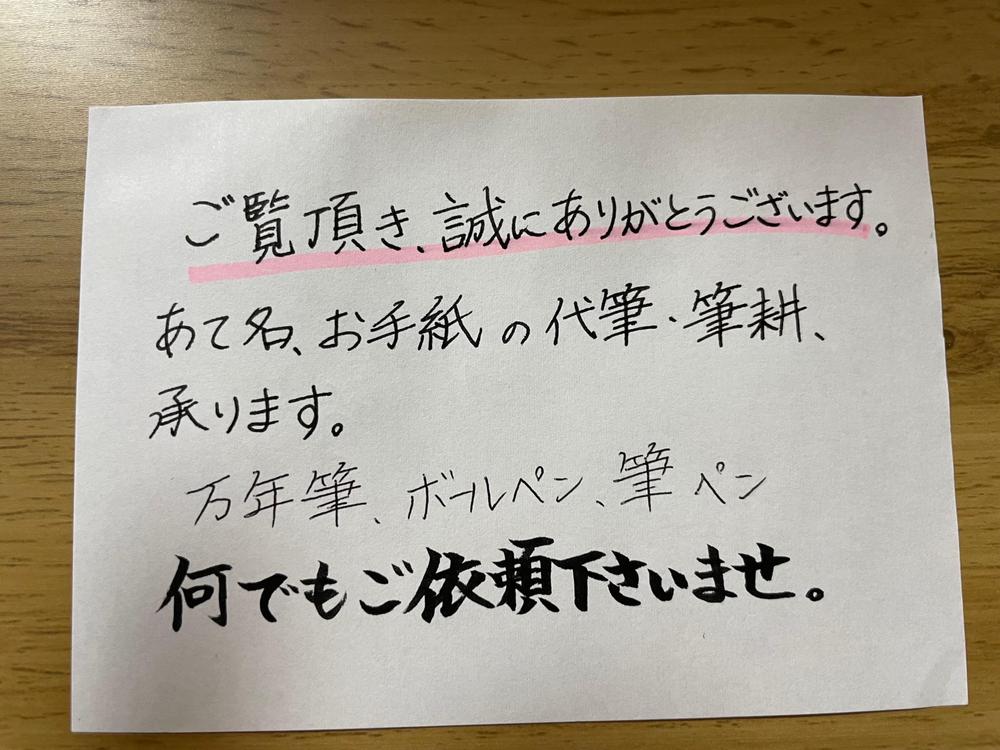 ご覧頂き、誠にありがとうございます。
あて名、お手紙の代筆・筆耕、
承ります。
万年筆、ボールペン、筆ペン
何でもご依頼下さいませ。